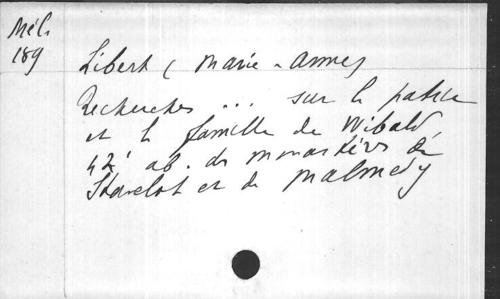 Mél.
189
Libert (Marie-Anne)
Recherches ... sur la patrie
et la famille de Wibald,
42e ab. des monastères de
Stavelot et de Malmédy